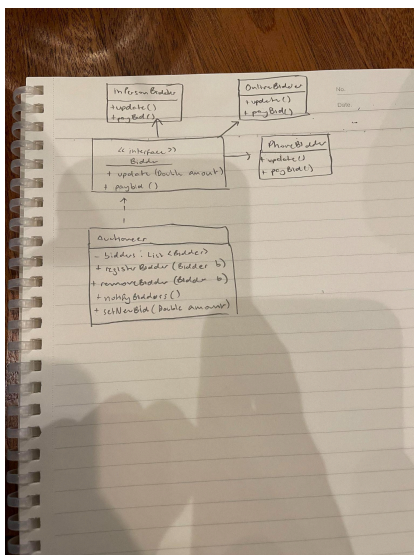 InPersonBidder
+ update()
+ payBid()
OnlineBidder
+ update()
+ payBid()
No.
Date
<< interface >>
Bidder
+ update (Double amount)
+ paybid ()
PhoneBidder
+ update()
+ payBid()
Auctioneer
- bidders : List <Bidder>
+ registerBidder (Bidder b)
+ removeBidder (Bidder b)
+ notifyBidders ()
+ setNewBid (Double amount)